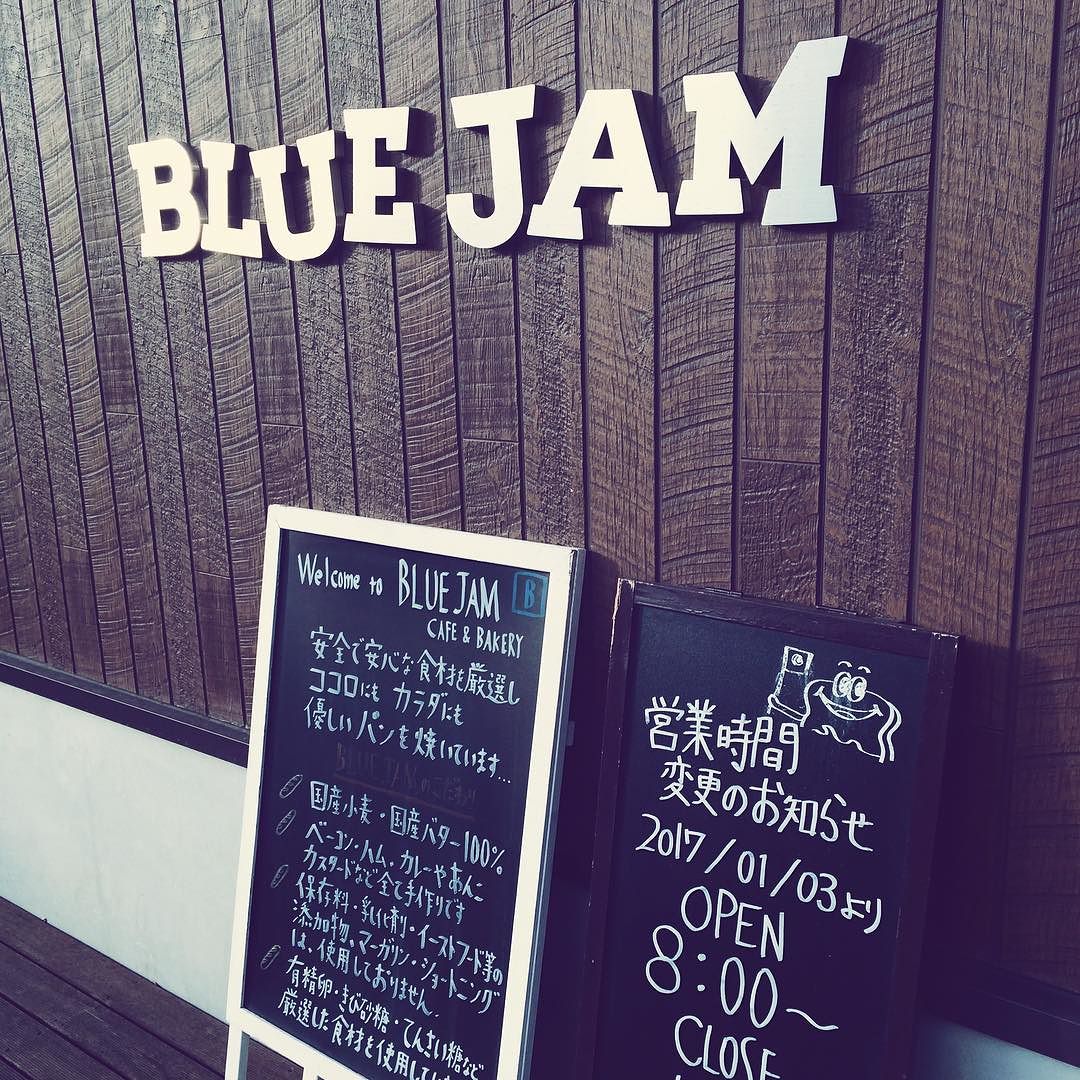 BLUE JAM
Welcome to BLUE JAM B
CAFE & BAKERY
安全で安心な食材を厳選し
ココロにも カラダにも
優しいパンを焼いています...
BLUE JAMのこだわり
国産小麦・国産バター100%
ベーコン・ハム・カレーやあんこ
カスタードなど全て手作りです
保存料・乳化剤・イーストフード等の
添加物、マーガリン・ショートニング
は、使用しておりません。
有精卵・きび砂糖・てんさい糖など
厳選した食材を使用してい
営業時間
変更のお知らせ
2017/01/03より
OPEN
8:00〜
CLOSE